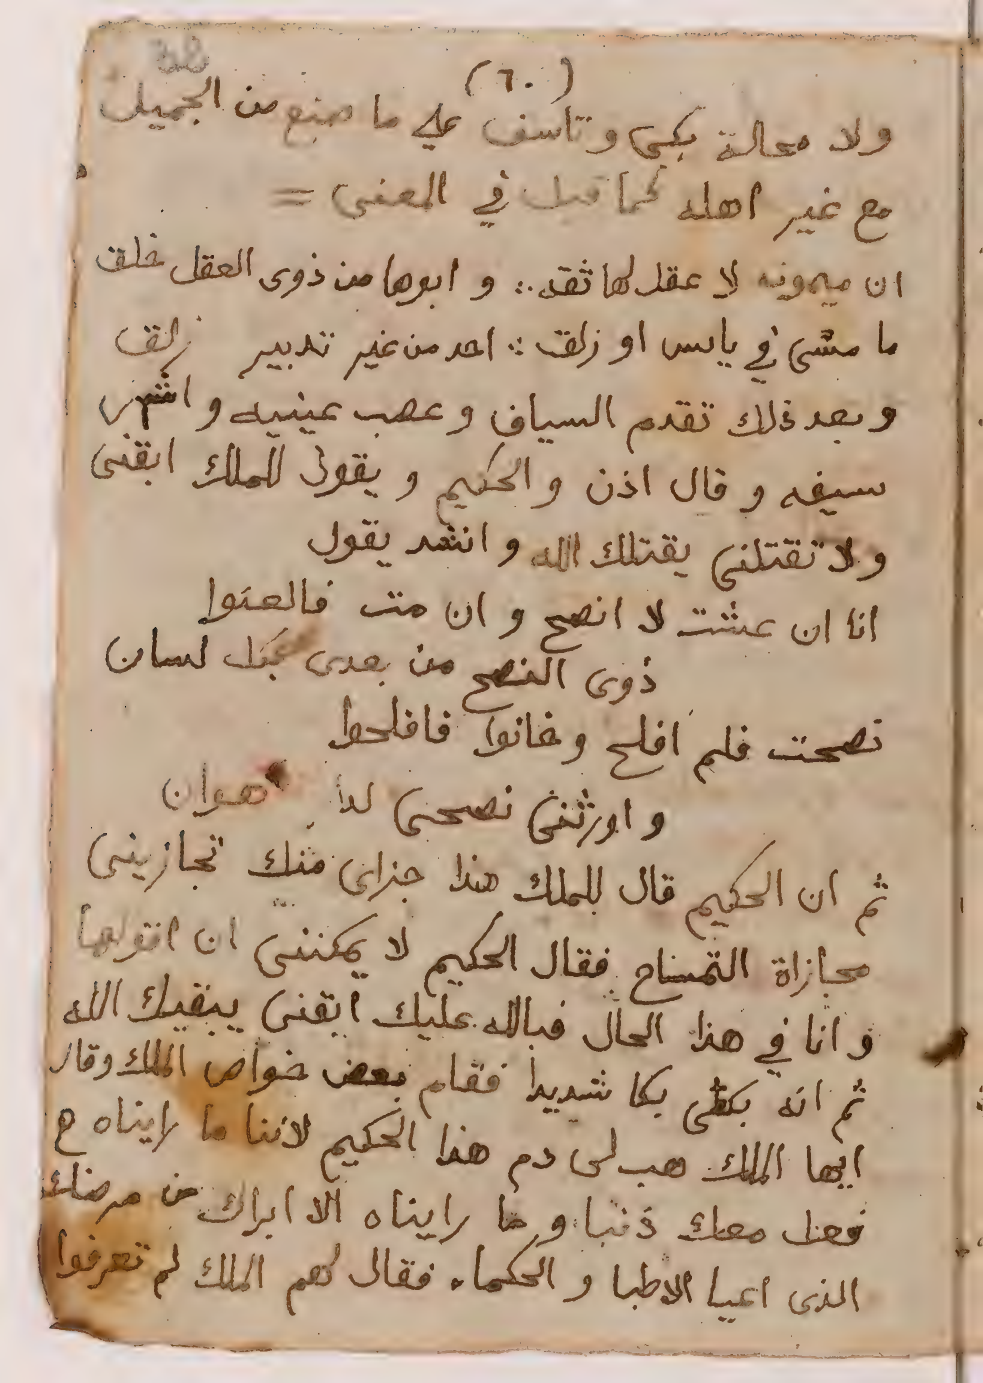 38
(٦٠)
ولا محالة بكى وتاسف على ما صنع من الجميل
مع غير اهله كما قيل في المعنى =
ان ميمونه لا عقل لها ثقه ∴ و ابوها من ذوى العقل خلق
ما مشى في يابس او زلق ∴ احد من غير تدبير زلق
و بعد ذلك تقدم السياف و عصب عينيه و اشهر
سيفه و قال اذن و الحكيم و يقول للملك ابقنى
و لا تقتلنى يقتلك الله و انشد يقول
انا ان عشت لا انصح و ان مت فالعنوا
ذوى النصح من بعدى بكل لسان
نصحت فلم افلح و خانوا فافلحوا
و اورثنى نصحى لدا هوان
ثم ان الحكيم قال للملك هذا جزاى منك تجازينى
مجازاة التمساح فقال الحكيم لا يمكننى ان اقولها
و انا في هذا الحال فبالله عليك ابقنى يبقيك الله
ثم انه بكى بكا شديدا فقام بعض خواص الملك وقال
ايها الملك هب لى دم هذا الحكيم لاننا ما رايناه
فعل معك ذنبا و ما رايناه الا ابراك من مرضك
الذى اعيا الاطبا و الحكماء فقال لهم الملك لم تعرفوا